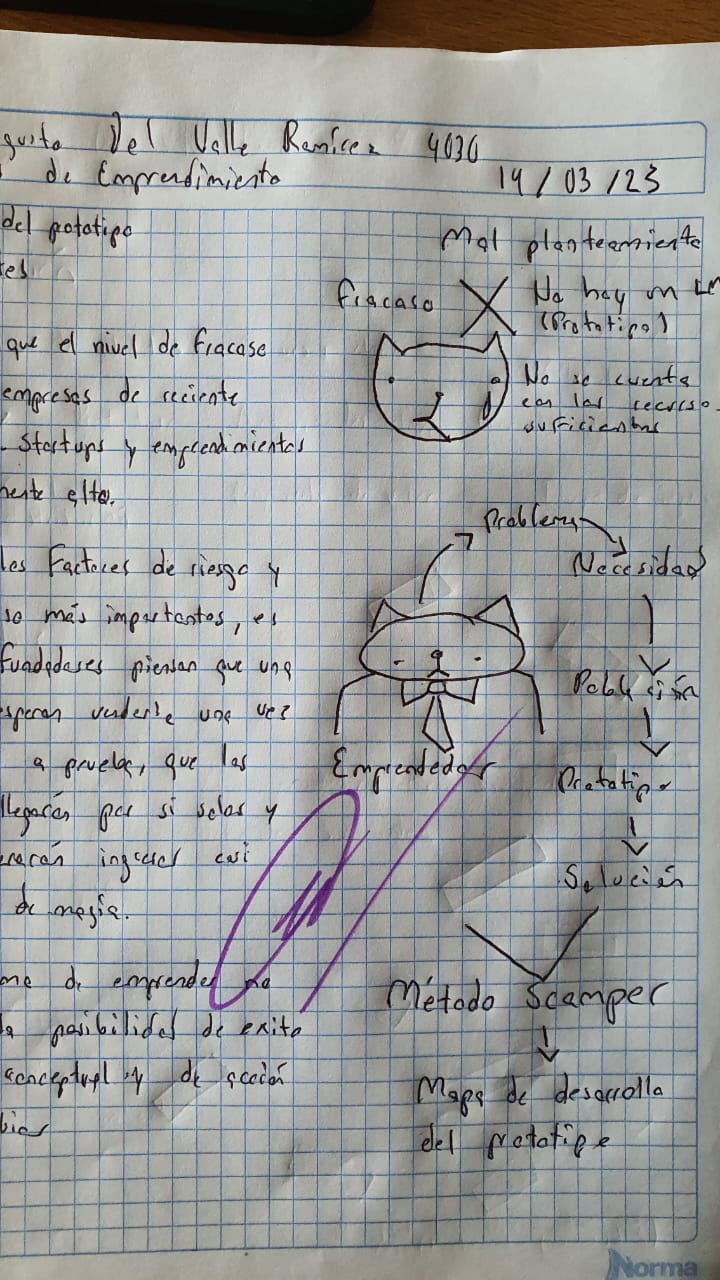 guito Del Valle Ramírez 4030
de Emprendimiento
14/03/23
del pototipo
tes
que el nivel de fracaso
empresas de reciente
Startups y emprendimientos
mente alto.
los Factores de riesgo y
so más importantes, es
fundadores piensan que una
esperan venderse una vez
a prueba, que las
llegarán por si solas y
erarán ingresos casi
de magia.
me de emprender no
la posibilidad de exito
conceptual y de acción
bios
Mal planteamiento
fracaso
No hay un
(Prototipo)
No se cuenta
con los recurso
suficientes
Problema
Necesidad
Población
Prototipo
Solución
Emprendedor
Método Scamper
Mapa de desarrollo
del prototipo
Norma